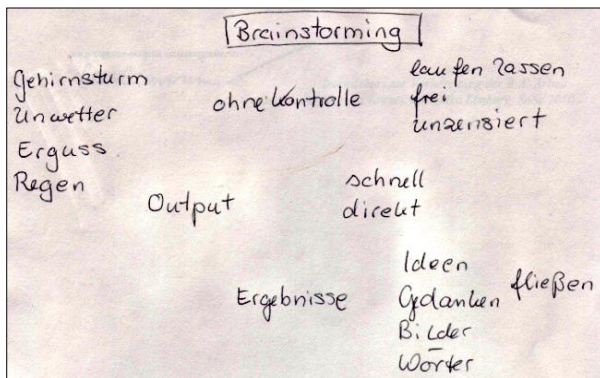 Brainstorming
Gehirnsturm
Unwetter
Erguss
Regen
ohne Kontrolle
laufen lassen
frei
unzensiert
Output
schnell
direkt
Ergebnisse
Ideen
Gedanken
Bilder
Wörter
fließen